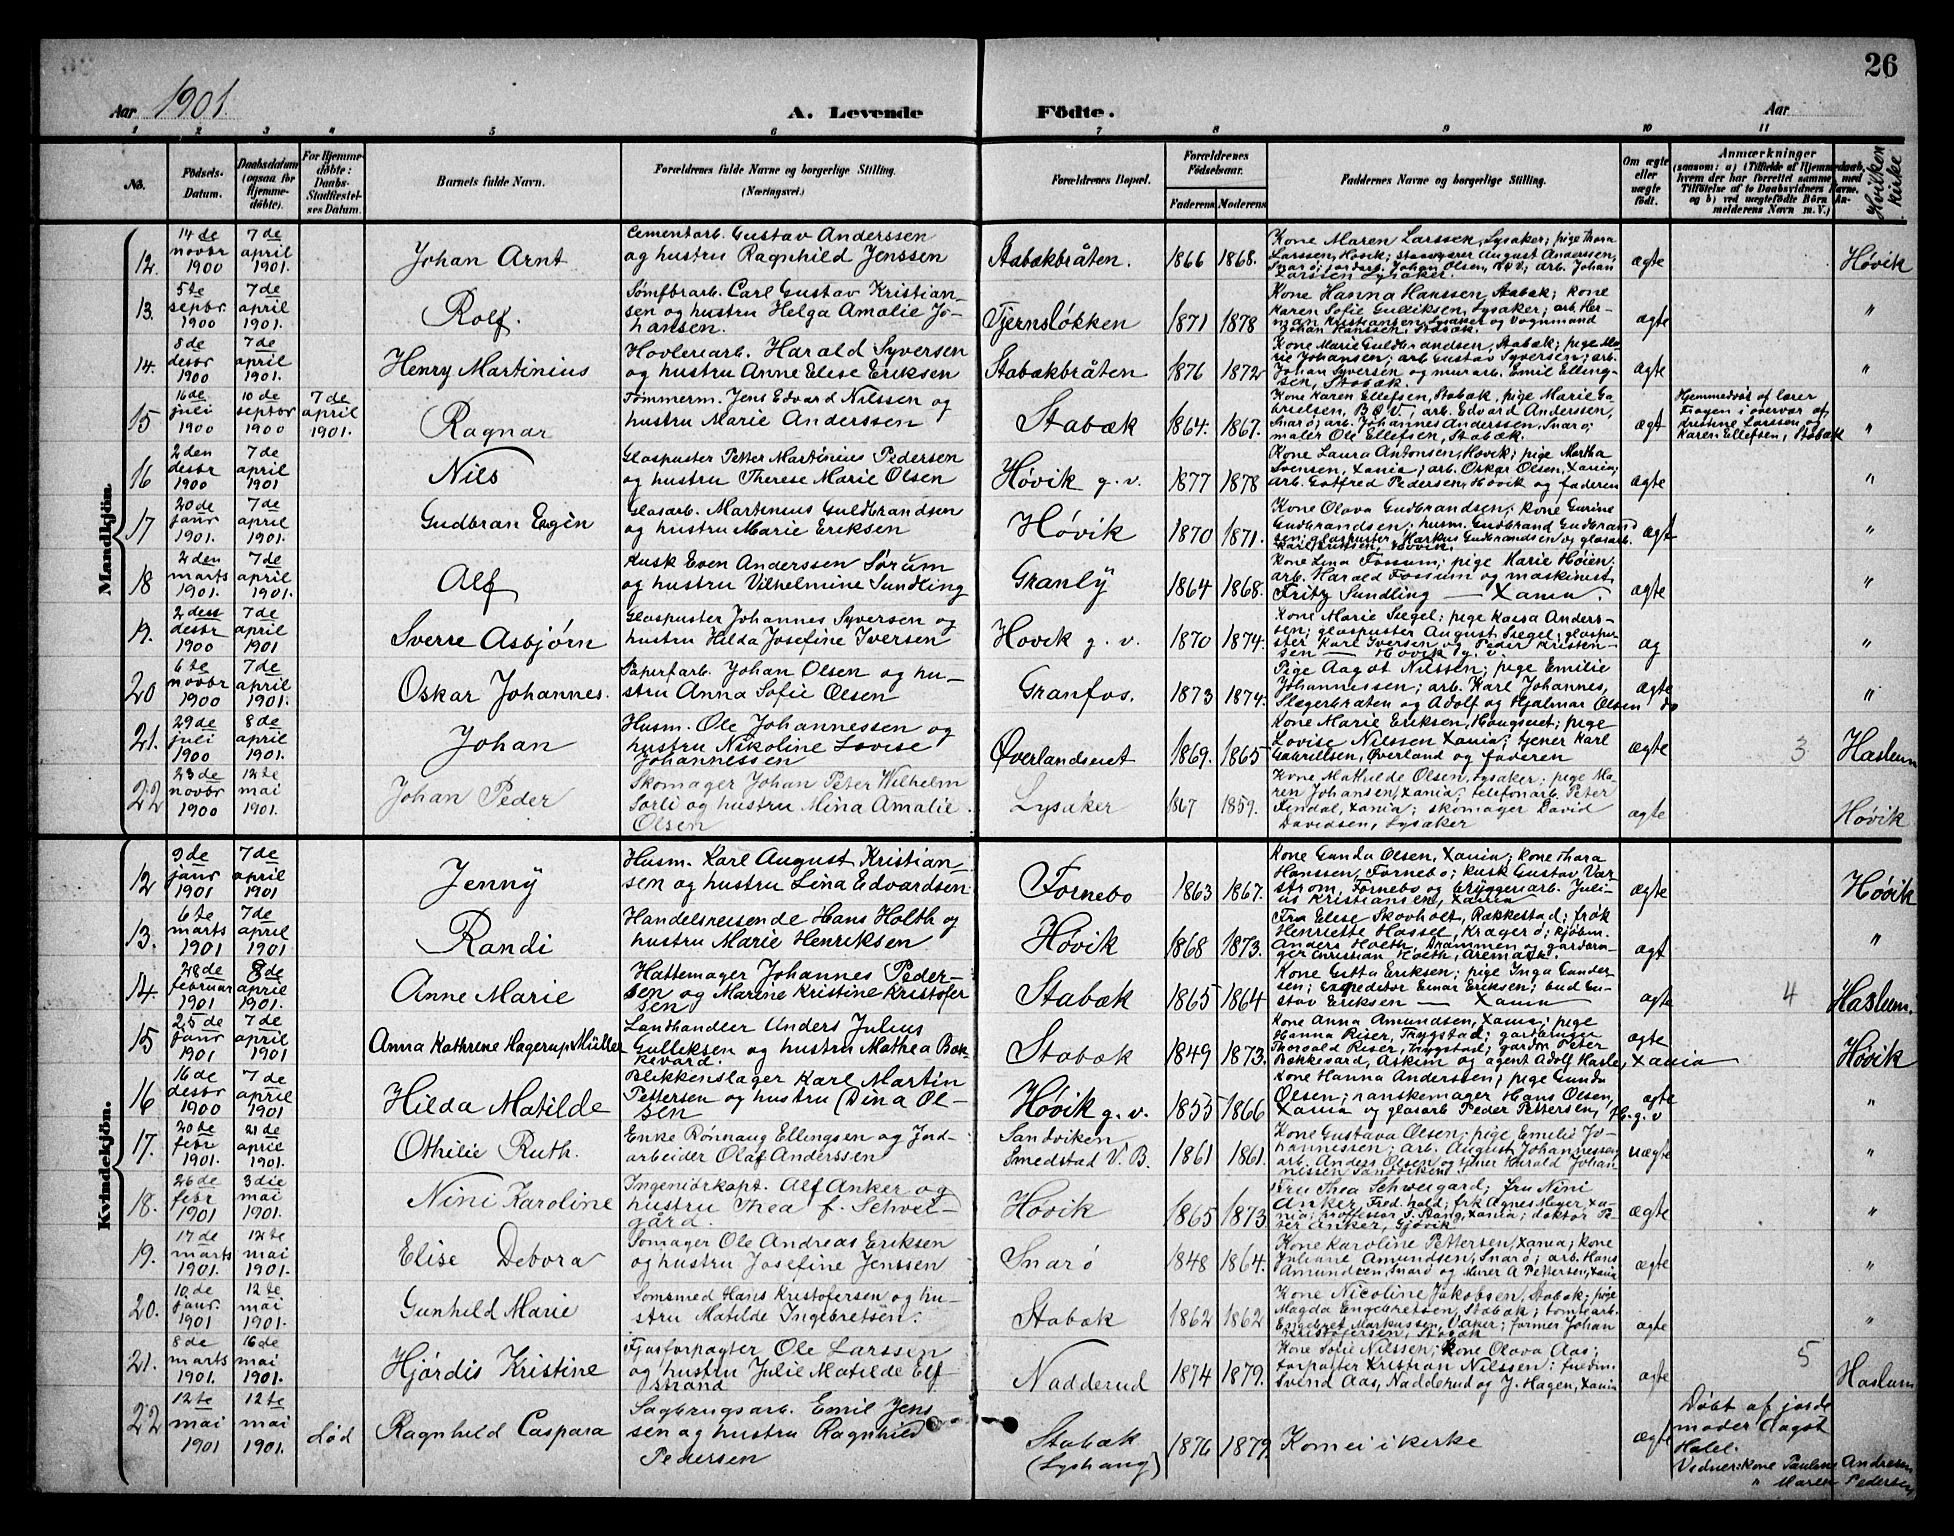 26
Aar 1901.
A. Levende Födte.
Aar
1 2 3 4 5 6 7 8 9 10 11
No.
Födsels-Datum.
Daabsdatum (ogsaa for Hjemmedöbte).
For Hjemmedöbte: Daabs-Stadfæstelses Datum.
Barnets fulde Navn.
Forældrenes fulde Navne og borgerlige Stilling. (Næringsvei.)
Forældrenes Bopæl.
Forældrenes Födselsaar.
Faderens
Moderens
Faddernes Navne og borgerlige Stilling.
Om ægte eller uægte födt.
Anmærkninger
Hvilken Kirke
Mandkjön.
12. 14de novbr 1900 7de april 1901. Johan Arnt
Cementarb. Gustav Anderssen
og hustru Ragnhild Jenssen
Stabækbråten. 1866 1868.
Kone Maren Larssen, Lysaker; pige Thora
Larssen, Høvik; August Anderssen,
Snarø; Johan Olsen, arb. Johan
Larssen Lysaker.
ægte Høvik
13. 5te septbr 1900 7de april 1901. Rolf.
Carl Gustav Kristian-
sen og hustru Helga Amalie Jo-
hansen.
Tjernsløkken 1871 1878
Kone Hanna Hanssen Stabæk; kone
Karen Sofie Gulliksen, Lysaker; arb. Her-
man Kristiansen, Lysaker og Vognmand
Johan Hanssen, Stabæk.
ægte "
14. 8de desbr 1900 7de april 1901. Henry Martinius
Høvleriarb. Harald Syversen
og hustru Anne Elise Eriksen
Stabækbråten 1876 1872
Kone Marie Guldbrandsen, Stabæk; pige Ma-
rie Johansen; arb Gustav Syversen; arb.
Johan Syversen og murarb. Emil Elling-
sen, Stabæk.
ægte "
15 16de juli 1900 10de septbr 1900 7de april 1901. Ragnar
Tømmerm. Jens Edvard Nilssen og
hustru Marie Anderssen
Stabæk 1864. 1867.
Kone Karen Ellefsen, Stabæk, pige Marie Ga-
brielsen, arb. Edvard Anderssen,
Snarø; arb. Johannes Anderssen, Snarø;
maler Ole Ellefsen, Stabæk.
ægt
Hjemmedøbt af lærer
Fragen i overvær af
Kristine Larssen og
Karen Ellefsen, Stabæk
"
16 2den desbr 1900 7de april 1901 Nils
Glaspuster Petter Martinius Pedersen
og hustru Therese Marie Olsen
Høvik g. v. 1877 1878
Kone Laura Antonsen, Høvik; pige Martha
Svensen, Xania; arb. Oskar Olsen, Xania;
arb. Gotfred Pedersen, Høvik og faderen
ægte "
17 20de janr 1901. 7de april 1901. Gudbran Engin
Glasarb. Martinius Guldbrandsen
og hustru Marie Eriksen
Høvik 1870 1871.
Kone Olava Gudbrandsen; kone Gurine
Gudbrandsen; husm. Gudbrand Gudbrand
sen; glaspuster Markus Gudbrandsen og glasarb.
Karl Eriksen, Høvik.
ægt "
18 2den marts 1901. 7de april 1901. Alf
Kusk Even Anderssen Sørum
og hustru Vilhelmine Sundling
Granly 1864 1868.
Kone Lina Fossum; pige Marie Høien;
arb. Harald Fossum og maskinist
Fritz Sundling — Xania.
ægte "
19. desbr 1900 7de april 1901 Sverre Asbjørn
Glaspuster Johannes Syversen og
hustru Hilda Josefine Iversen
Høvik g. v. 1870 1874.
Kone Marie Siegel; pige Anders-
sen; glaspuster August Siegel; glaspu-
ster Karl Iversen og Peder Kristen-
sen — Høvik g. v.
æg "
20 6te novbr 1900 7de april 1901. Oskar Johannes.
Papirfarb. Johan Olsen og hu-
stru Anna Sofie Olsen
Granfos. 1873 1874.
Pige Aagot Nilssen; pige Emilie
Johannessen; arb. Karl Johannes,
og Adolf og Hjalmar Olsen do
ægte "
21. 29de juli 1900 8de april 1901. Johan
Husm. Ole Johannessen og
hustru Nikoline Lovise
Johannessen
Øverlandseiet 1869. 1865
Kone Marie Eriksen, Haugseiet; pige
Lovise Nilssen Xania; tjener Karl
Gabrielsen, Øverland og faderen
ægte 3 Haslum
22 23de novbr 1900 12te mai 1901. Johan Peder
Skomager Johan Peter Wilhelm
Sørli og hustru Mina Amalie
Olsen
Lysaker 1867 1859.
Kone Mathilde Olsen, Lysaker; pige Ma-
ren Johansen, Xania; telefonarb. Peter
Xania; skomager David
Davidsen, Lysaker
ægte Høvik
Kvindekjön.
12 9de janr 1901 7de april 1901 Jenny
Husm. Karl August Kristian-
sen og hustru Lina Edvardsen
Fornebo 1863 1867.
Kone Gunda Olsen, Xania; kone Thora
Hanssen, Fornebo; kusk Gustav Vær-
strøm, Fornebo og bryggeriarb. Juli-
us Kristiansen, Xania
ægte Høvik
13. 6te marts 1901 7de april 1901. Randi
Handelsreisende Hans Holth og
hustru Marie Henriksen
Høvik 1868 1873.
Fru Elise Skovholt, Rækkestad; frøk
Henriette Hassel, Kragerø; kjøbm.
Anders Holth, Drammen og gårdbru-
ger Christian Holth, Aremark.
ægt "
14. 28de februar 1901 8de april 1901. Anne Marie
Hattemager Johannes Peder-
sen og Marine Kristine Kristofer
sen
Stabæk 1865 1864
Kone Gitta Eriksen; pige Inga Gunder-
sen; Expeditør Einar Eriksen; bud Gu-
stav Eriksen — Xania
ægte 4 Haslum.
15 25de janr 1901 7de april 1901 Anna Kathrine Hagerup Müller
Landhandler Anders Julius
Gulliksen og hustru Mathea Bæk-
kevard.
Stabæk 1849 1873.
Kone Anna Amundsen, Xania; pige
Hanna Riser, Trygstad; gårdbruger
Thorvald Riser, Trygstad; gårdbr Peter
Bækkevard, Askim og agent Adolf Hasle, Xania
ægte Høvik
16 16de desbr 1900 7de april 1901 Hilda Matilde
Blikkenslager Karl Martin
Pettersen og hustru Dina Ol-
sen
Høvik g. v. 1855 1866
Kone Hanna Anderssen; pige Gunda
Olsen; hanskemager Hans Olsen,
Xania og glasarb Peder Pettersen, H. g. v
ægte "
17. 20de febr 1901. 21de april 1901. Othilie Ruth.
Enke Rønnaug Ellingsen og Jord-
arbeider Olaf Anderssen
Sandviken
Smedstad V. B. 1861 1861.
Kone Gustava Olsen; pige Emilie Jo-
hannessen, arb. August Johannessen,
arb. Anders Olsen og tjener Harald Johan
nessen Sandviken
uægte "
18. 26de febr 1901 3die mai 1901. Nini Karoline
Ingeniørkapt. Alf Anker og
hustru Thea f. Schwei-
gård.
Høvik 1865 1873
Fru Thea Schweigård; fru Nini
Anker, Fred.hald; frk Agnes Meyer, Xa-
nia; professor F. Stang, Xania; doktor Pe-
ter Anker, Gjøvik
ægte "
19. 17de marts 1901. 12te mai 1901. Elise Debora
Ole Andreas Eriksen
og hustru Josefine Jenssen
Snarø 1848 1864.
Kone Karoline Pettersen, Xania; kone
Juliane Amundsen, Snarø; arb. Hans
Amundsen, Snarø og Murer A Pettersen, Xania
ægte "
20. 10de janr 1901 12te mai 1901. Gunhild Marie
Hans Kristofersen og hu-
stru Matilde Ingebretsen.
Stabæk 1862 1862
Kone Nicoline Jakobsen, Stabæk; pige
Magda Engebretsen, Stabæk; tomtearb.
Engebret Markussen, Vaker; former Johan
Kristofersen, Stabæk
ægte "
21. 8de marts 1901. 16de mai 1901. Hjørdis Kristine
Fjøsforpagter Ole Larssen
og hustru Julie Matilde Elf
strand
Nadderud 1874 1879.
Kone Sofie Nilssen; kone Olava Aas;
forpagter Kristian Nilssen; fuldm.
Svend Aas, Nadderud og J. Hagen, Xania
ægte 5 Haslum
22 12te mai 1901 12te mai 1901. død Ragnhild Caspara
Sagbrugsarb. Emil Jens
sen og hustru Ragnhild
Pedersen
Stabæk
(Lyshaug) 1876 1879
Kom ei i kirke
ægte
Døbt af jorde
moder Aagot
Hotel.
Vidner: Kone Pauline Andresen
" Maren Pedersen